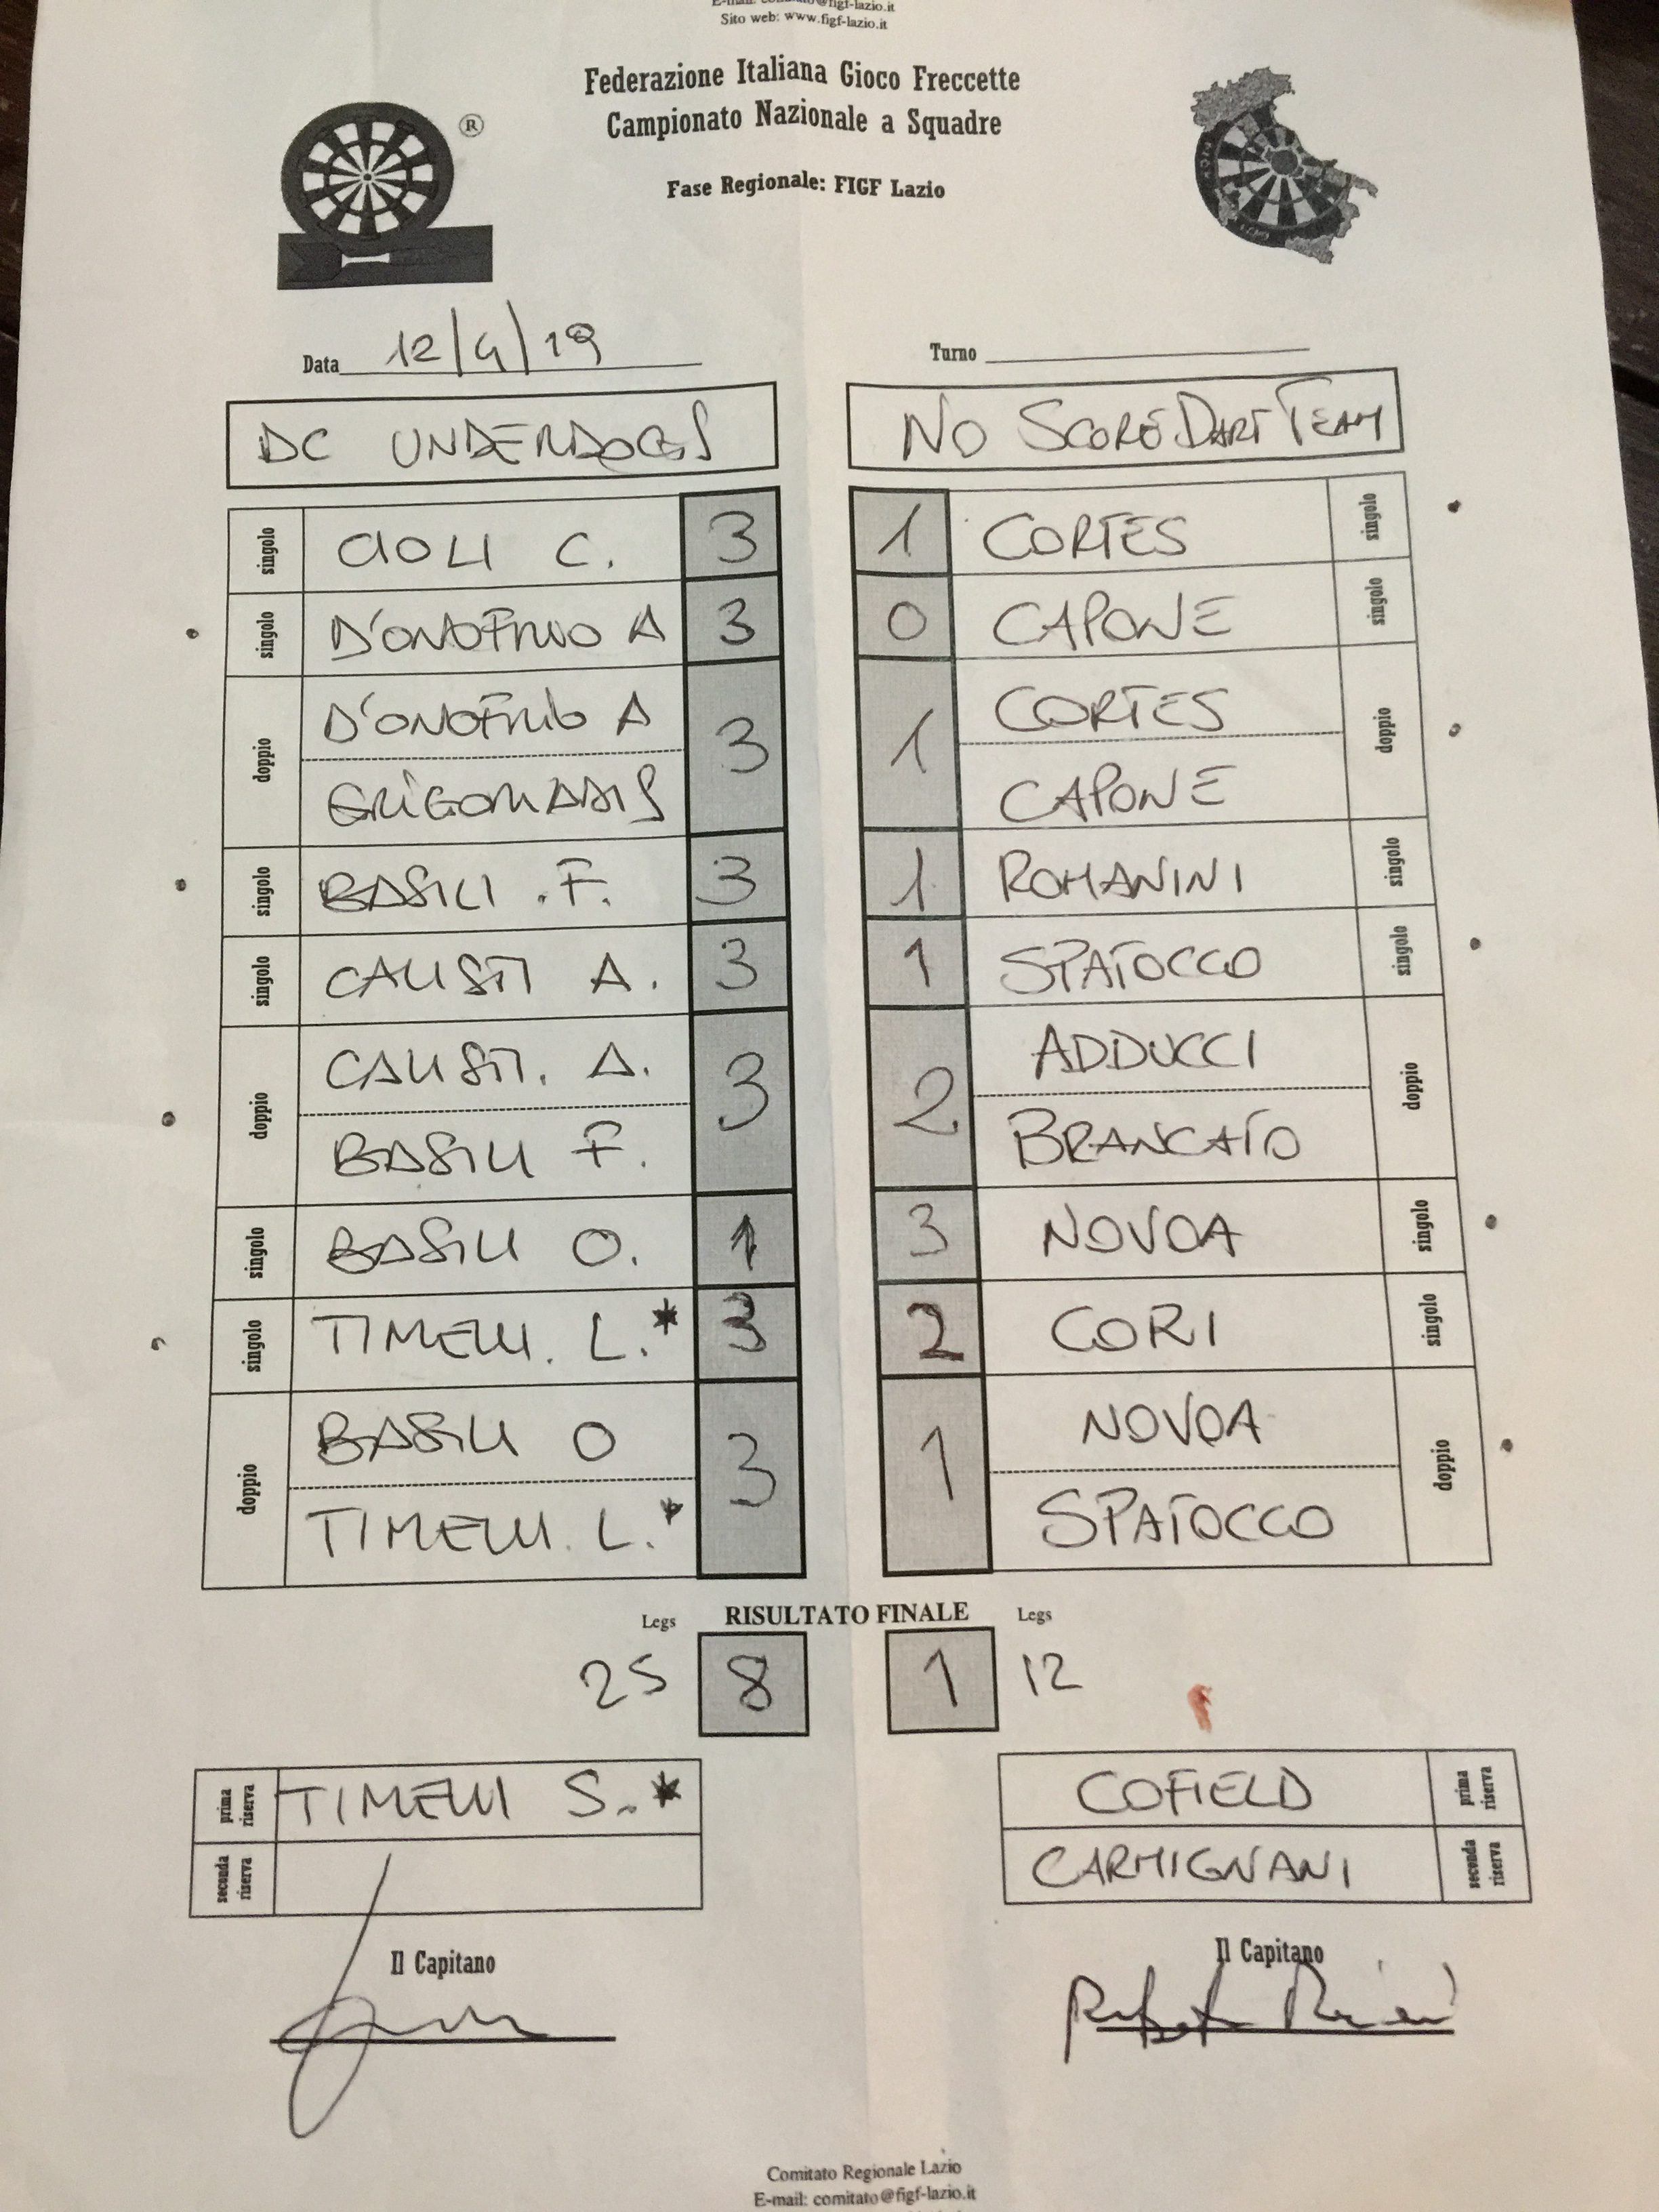 Sito web: www.figf-lazio.it
Federazione Italiana Gioco Freccette
Campionato Nazionale a Squadre
Fase Regionale: FIGF Lazio
®
Data 12/4/19
Turno
DC UNDERDOGS
NO SCORE DART TEAM
singolo CIOLI C. 3 1 CORTES singolo
singolo D'ONOFRIO A 3 0 CAPONE singolo
doppio D'ONOFRIO A 3 1 CORTES doppio
CAPONE
singolo BASILI .F. 3 1 ROMANINI singolo
singolo CALISTI A. 3 1 SPATOCCO singolo
doppio CALISTI. A. 3 2 ADDUCCI doppio
BASILI F. BRANCATO
singolo BASILI O. 1 3 NOVOA singolo
singolo TIMELLI. L.* 3 2 CORI singolo
doppio BASILI O 3 1 NOVOA doppio
TIMELLI. L.* SPATOCCO
Legs RISULTATO FINALE Legs
25 8 1 12
prima riserva TIMELLI S.* COFIELD prima riserva
seconda riserva CARMIGNANI seconda riserva
Il Capitano Il Capitano
Comitato Regionale Lazio
E-mail: comitato@figf-lazio.it